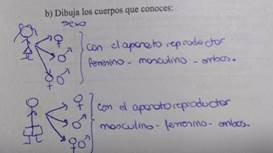 b) Dibuja los cuerpos que conoces:
sexo
con el aparato reproductor
femenino - masculino - ambos.
con el aparato reproductor
masculino - femenino - ambos.